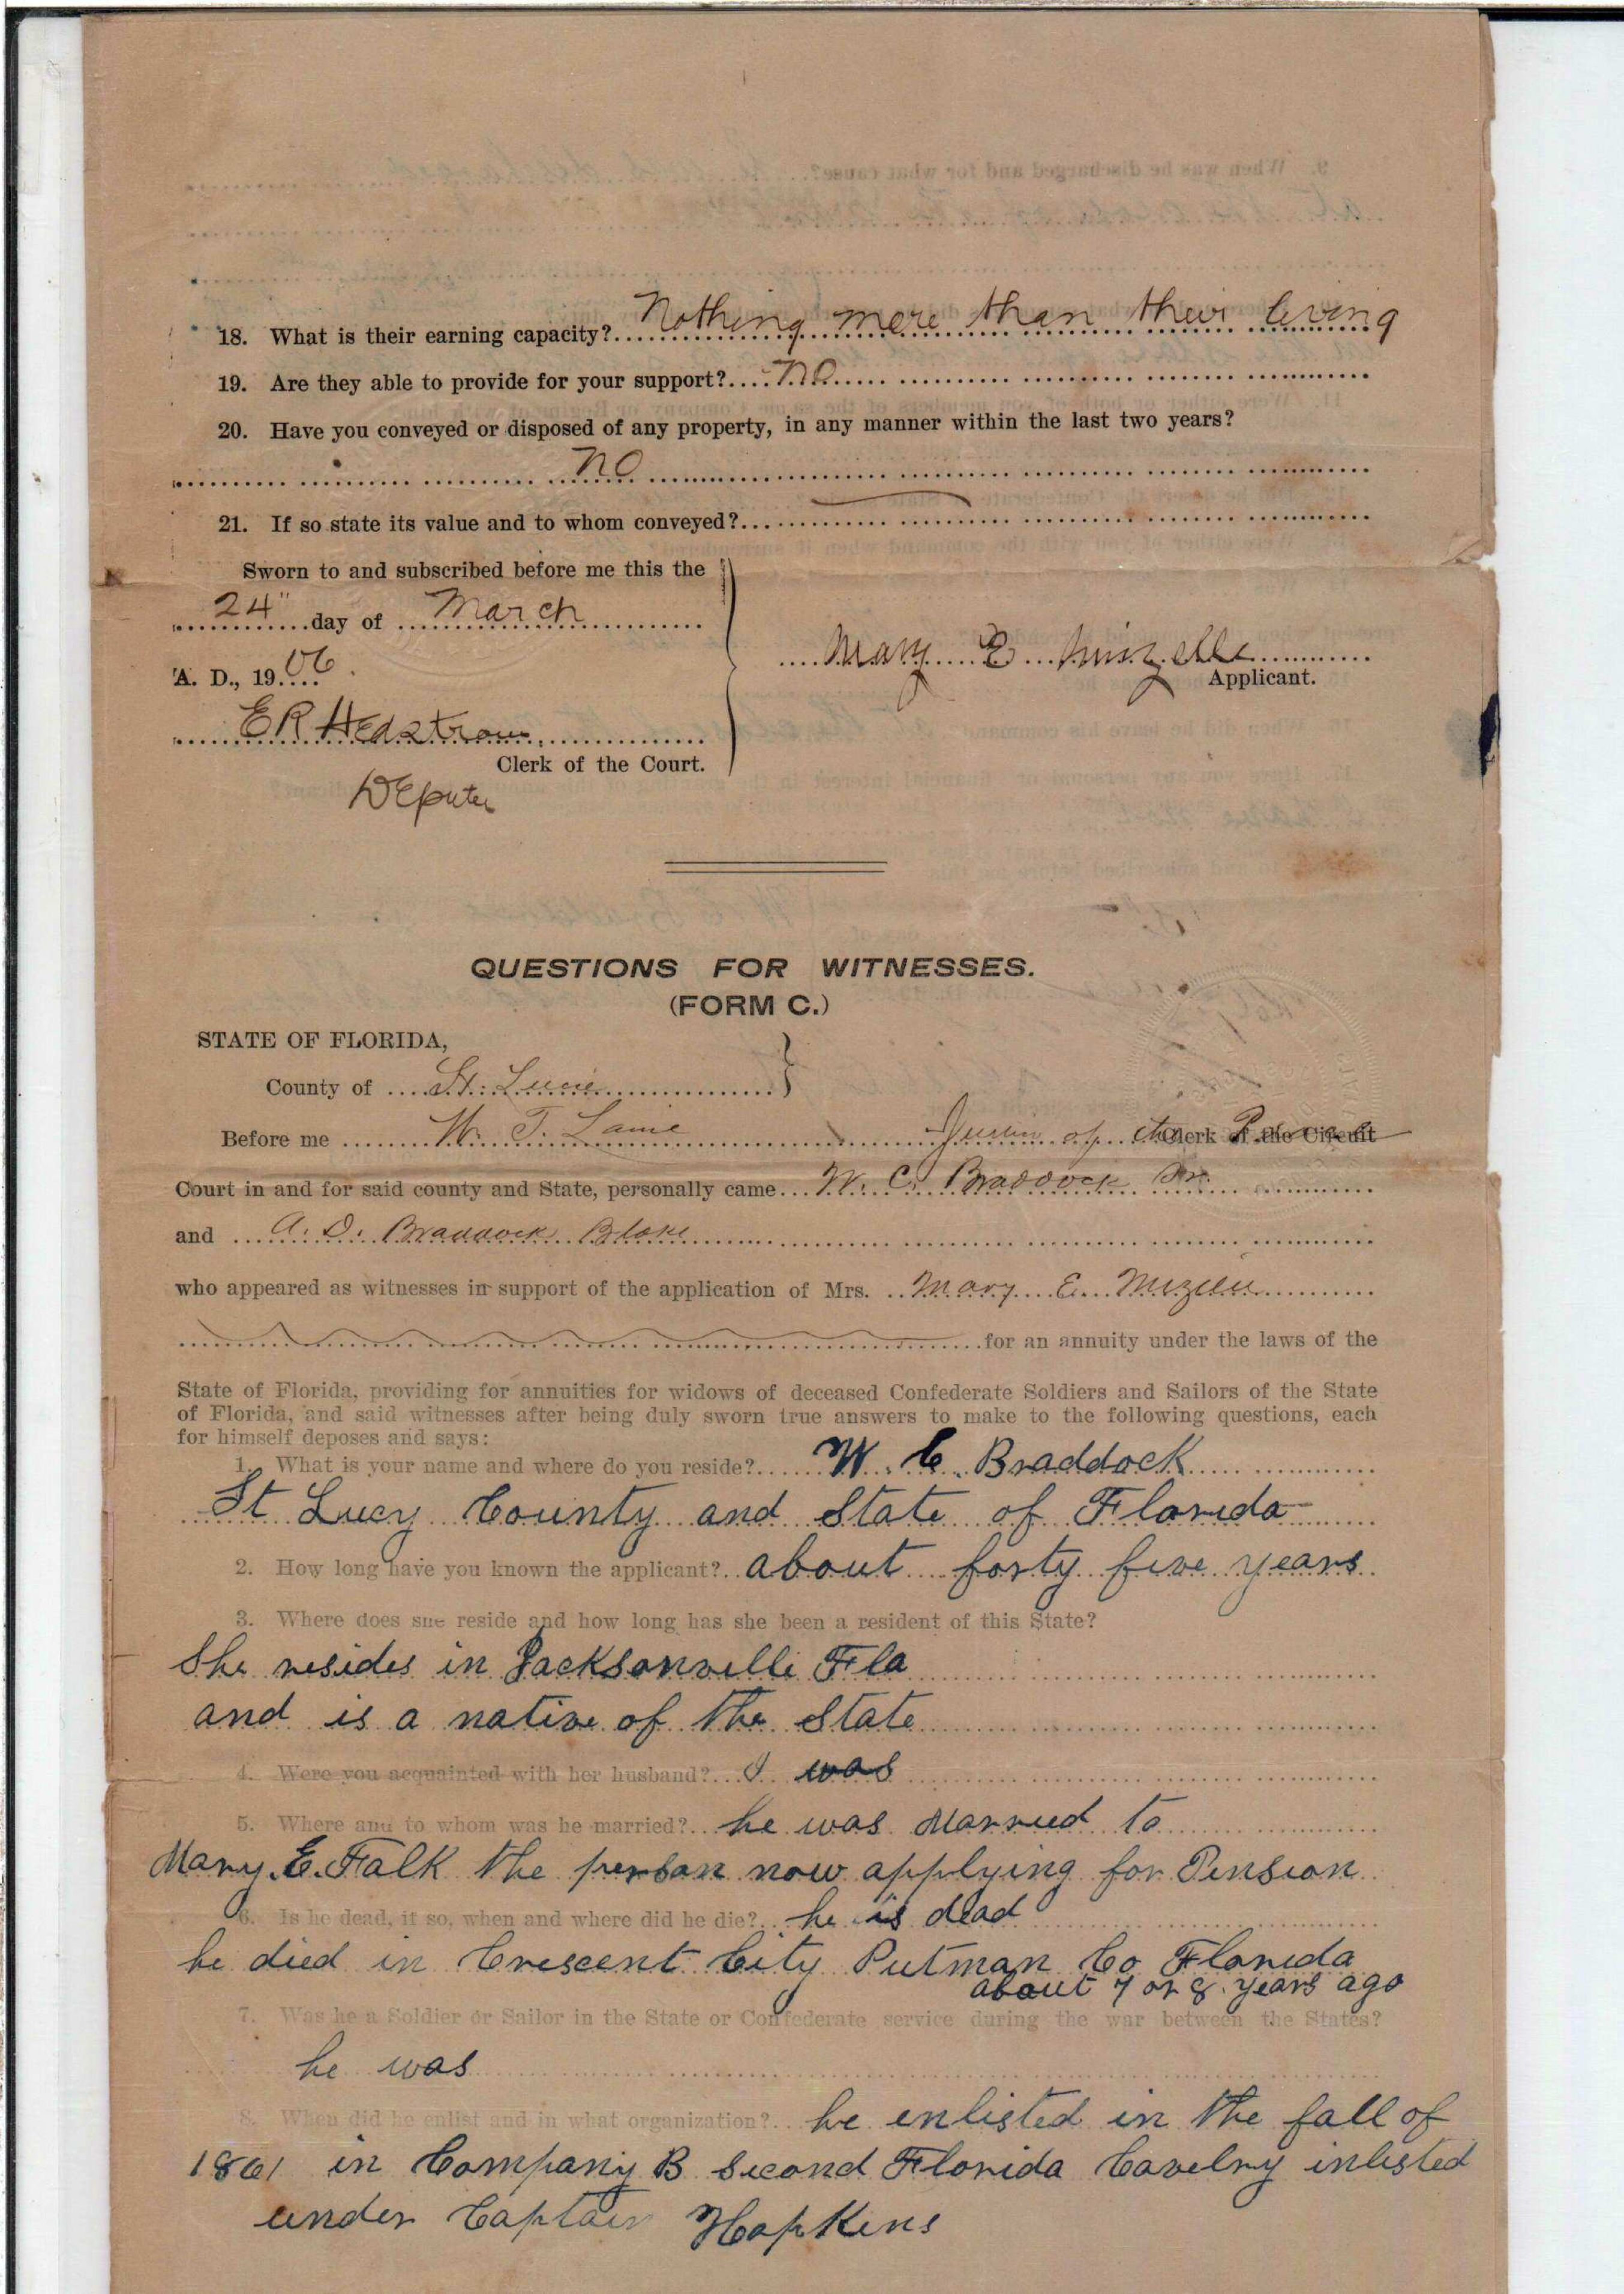 18. What is their earning capacity? Nothing more than their living
19. Are they able to provide for your support? no
20. Have you conveyed or disposed of any property, in any manner within the last two years?
no
21. If so state its value and to whom conveyed?
Sworn to and subscribed before me this the
24" day of March
A. D., 1906
Mary E Mizelle
Applicant.
E R Hedstrom
Clerk of the Court.
Deputy
QUESTIONS FOR WITNESSES.
(FORM C.)
STATE OF FLORIDA,
County of St. Lucie
Before me W. T. Laine Justice of the Peace Clerk of the Circuit
Court in and for said county and State, personally came W. C. Braddock Sr.
and A. D. Braddock Blake
who appeared as witnesses in support of the application of Mrs. Mary E. Mizelle
for an annuity under the laws of the
State of Florida, providing for annuities for widows of deceased Confederate Soldiers and Sailors of the State
of Florida, and said witnesses after being duly sworn true answers to make to the following questions, each
for himself deposes and says:
1. What is your name and where do you reside? W. C. Braddock
St Lucy County and State of Florida
2. How long have you known the applicant? about forty five years
3. Where does she reside and how long has she been a resident of this State?
She resides in Jacksonville Fla
and is a native of the State
4. Were you acquainted with her husband? I was
5. Where and to whom was he married? he was Married to
Mary. E. Falk the person now applying for Pension
6. Is he dead, if so, when and where did he die? he is dead
he died in Crescent City Putman Co Florida
about 7 or 8 years ago
7. Was he a Soldier or Sailor in the State or Confederate service during the war between the States?
he was
8. When did he enlist and in what organization? he enlisted in the fall of
1861 in Company B Second Florida Cavelry inlisted
under Captain Hopkins